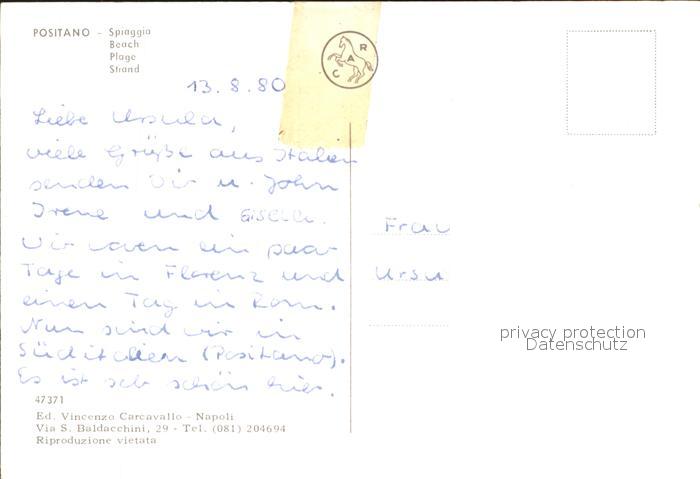 POSITANO - Spiaggia
Beach
Plage
Strand
R
A
C
13.8.80
Liebe Ursula,
viele Grüße aus Italien
senden Dir u. John
Irene und Gisela.
Wir waren ein paar
Tage in Florenz und
einen Tag in Rom.
Nun sind wir in
Süditalien (Positano).
Es ist sehr schön hier.
Frau
Ursu
privacy protection
Datenschutz
47371
Ed. Vincenzo Carcavallo - Napoli
Via S. Baldacchini, 29 - Tel. (081) 204694
Riproduzione vietata